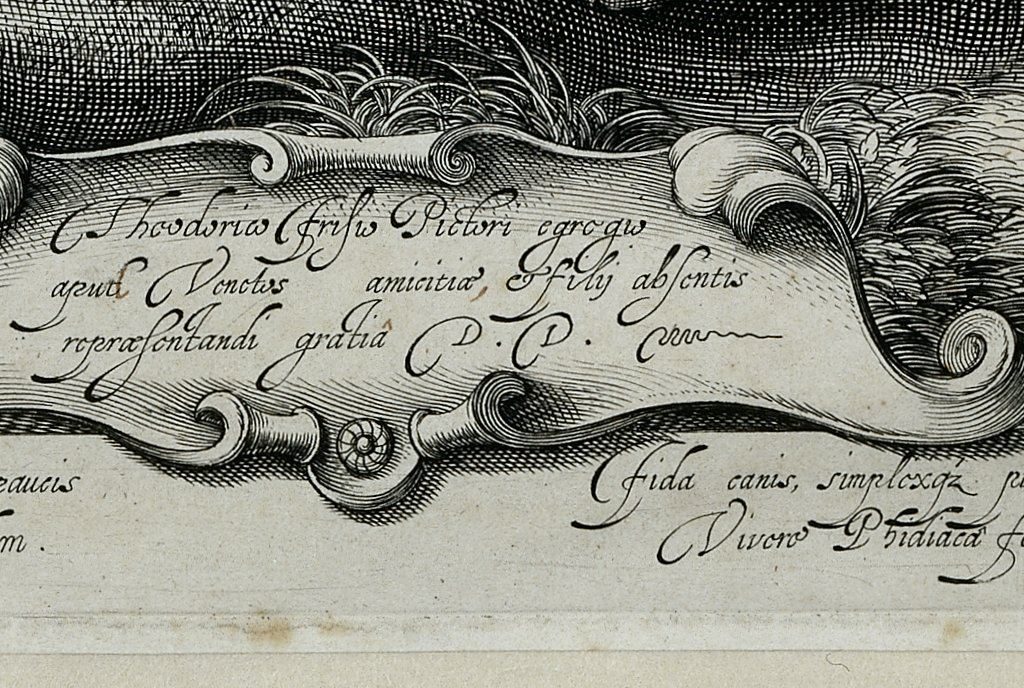 Theodorico Frisio Pictori egregio
apud Venetos amicitiæ, & filij absentis
repræsentandi gratia D. D.
Fida canis, simplexq3
Vivere Phidiacâ